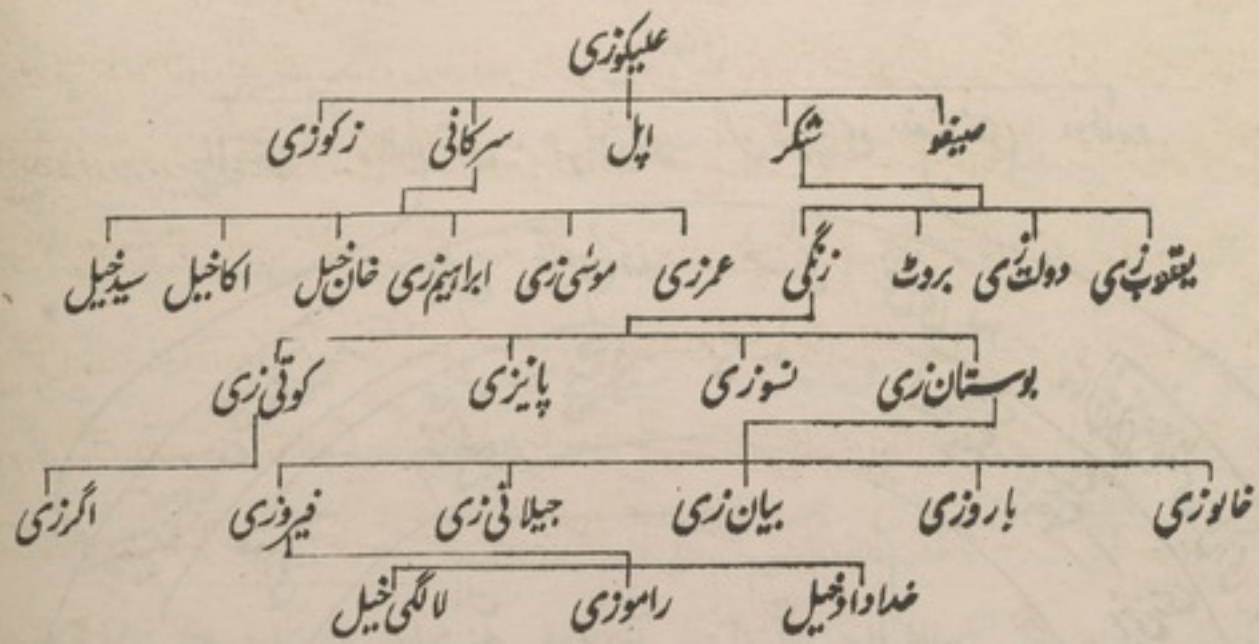 علیکوزی
صیفو شکر اپل سرکانی زکوزی
یعقوب زی دولت زی بروٹ زنگی عمرزی موسٰی زی ابراہیم زی خان خیل اکاخیل سید خیل
بوستان زی نسوزی پائیزی کوٹی زی
خالوزی باروزی بیان زی جیلانی زی فیروزی اگرزی
خدادادخیل راموزی لالگی خیل